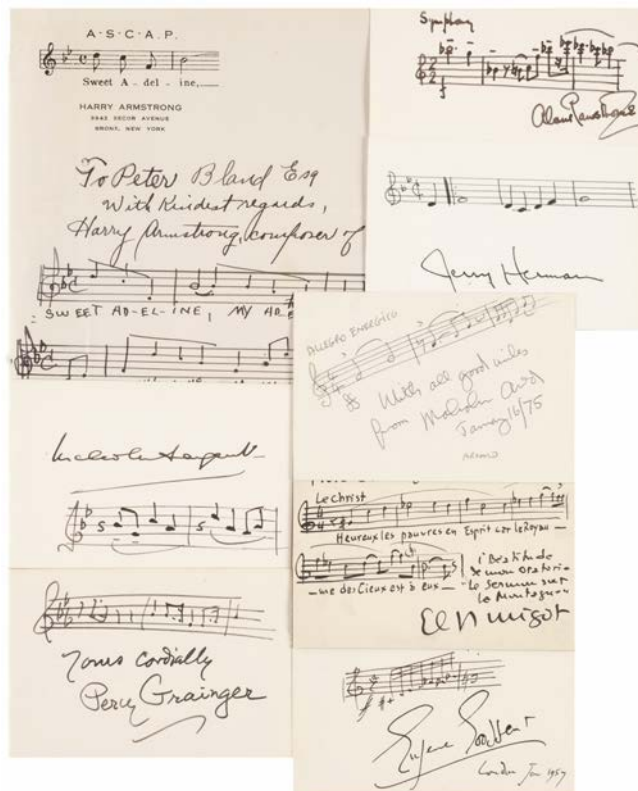 A·S·C·A·P.
Sweet A - del - ine,
HARRY ARMSTRONG
DECOR AVENUE
BRONX, NEW YORK
To Peter Bland Esq
With Kindest regards,
Harry Armstrong, composer of
SWEET AD-EL-INE, MY AD-E
Malcolm Sargent
Yours cordially
Percy Grainger
Symphony
Alan Rawsthorne
Jerry Herman
ALLEGRO ENERGICO
With all good wishes
from Malcolm Arnold
January 16/75
ARNOLD
Le Christ
Heureux les pauvres en Esprit car le Royau —
— me des Cieux est à eux —
de mon oratorio
le Sermon sur
la Montagne
Eugene Goossens
London Jan 1957